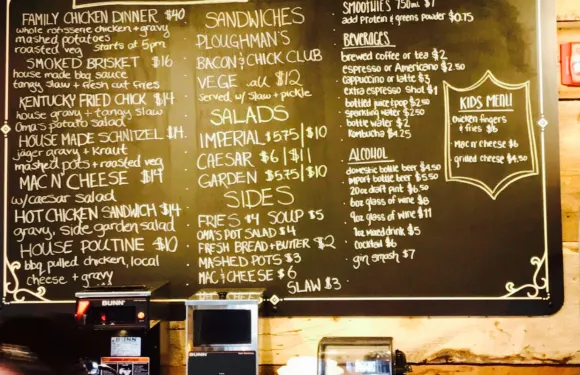 FAMILY CHICKEN DINNER $40
whole rotisserie chicken + gravy
mashed potatoes
roasted veg starts at 5pm
SMOKED BRISKET $16
house made bbq sauce
tangy slaw + fresh cut fries
KENTUCKY FRIED CHICK $14
house gravy + tangy slaw
Oma's potato salad
HOUSE MADE SCHNITZEL $14
jäger gravy + kraut
mashed pots + roasted veg
MAC N' CHEESE $14
w/caesar salad
HOT CHICKEN SANDWICH $14
gravy, side garden salad
HOUSE POUTINE $10
bbq pulled chicken, local
cheese + gravy
SANDWICHES
PLOUGHMAN'S
BACON & CHICK CLUB
VEGE all $12
served w/ slaw + pickle
SALADS
IMPERIAL $5.75/$10
CAESAR $6/$11
GARDEN $5.75/$10
SIDES
FRIES $4 SOUP $5
OMA'S POT SALAD $4
FRESH BREAD + BUTTER $2
MASHED POTS $3
MAC & CHEESE $6
SLAW $3
SMOOTHIES 750ml $7
add protein & greens powder $0.75
BEVERAGES
brewed coffee or tea $2
espresso or Americano $2.50
Cappuccino or latte $3
extra espresso shot $1
bottled juice/pop $2.50
sparkling water $2.50
bottle water $2
Kombucha $4.25
ALCOHOL
domestic bottle beer $4.50
import bottle beer $5.50
20oz draft pint $6.50
6oz glass of wine $8
9oz glass of wine $11
1oz mixed drink $5
cocktail $6
gin smash $7
KIDS MENU
chicken fingers
& fries $6
mac n' cheese $6
grilled cheese $4.50
BUNN
BUNN
BUNN